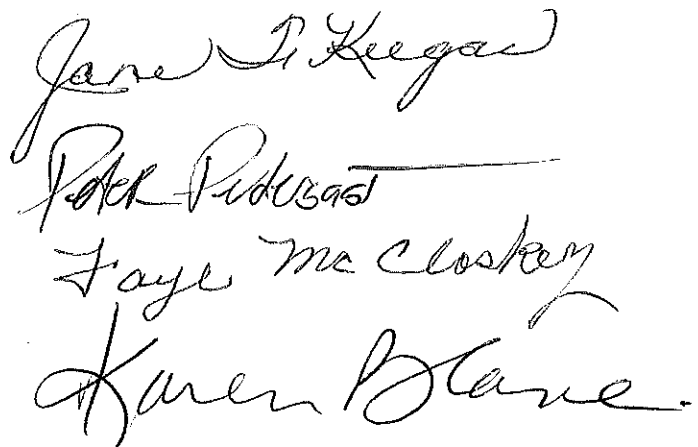 Jane F. Keegan
Peter Pedersen
Faye McCloskey
Karen Blane.